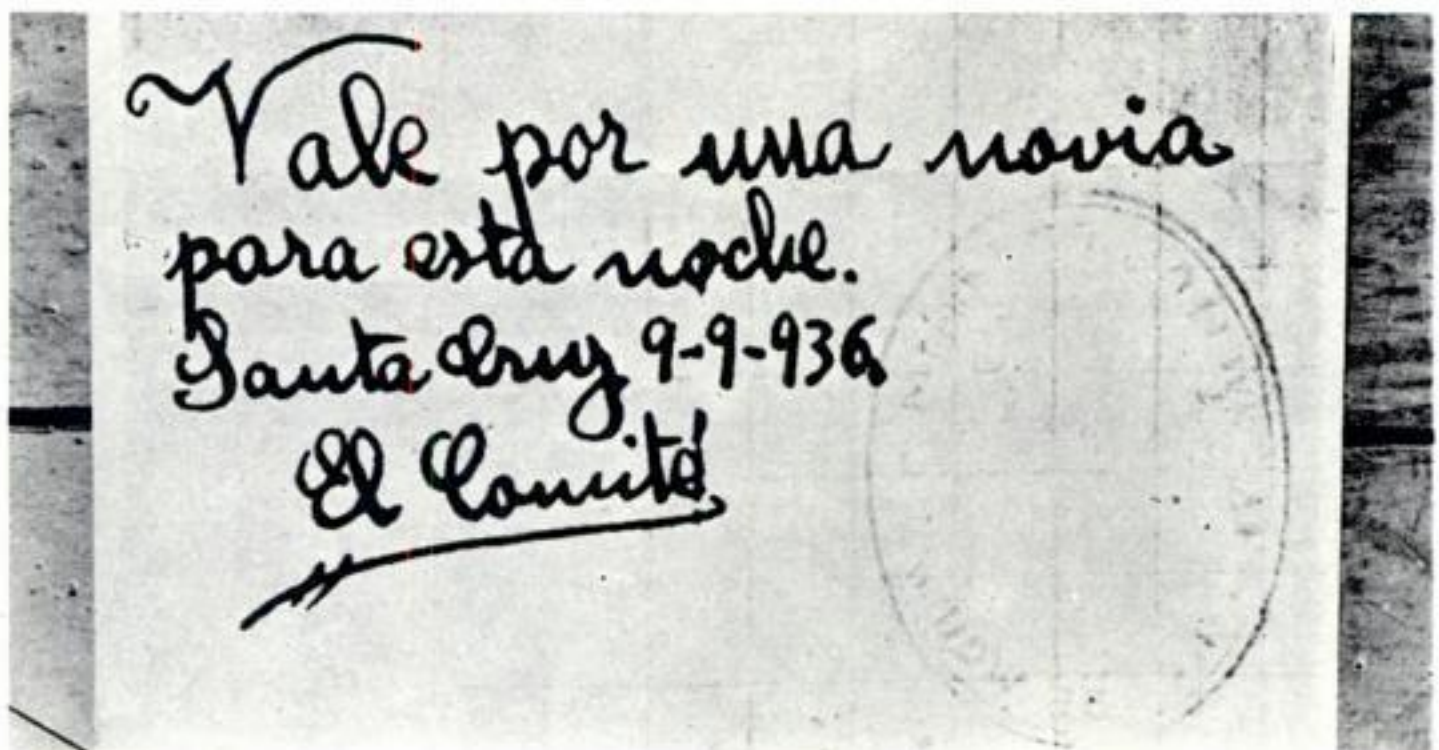 Vale por una novia
para esta noche.
Santa Cruz 9-9-936.
El Comité